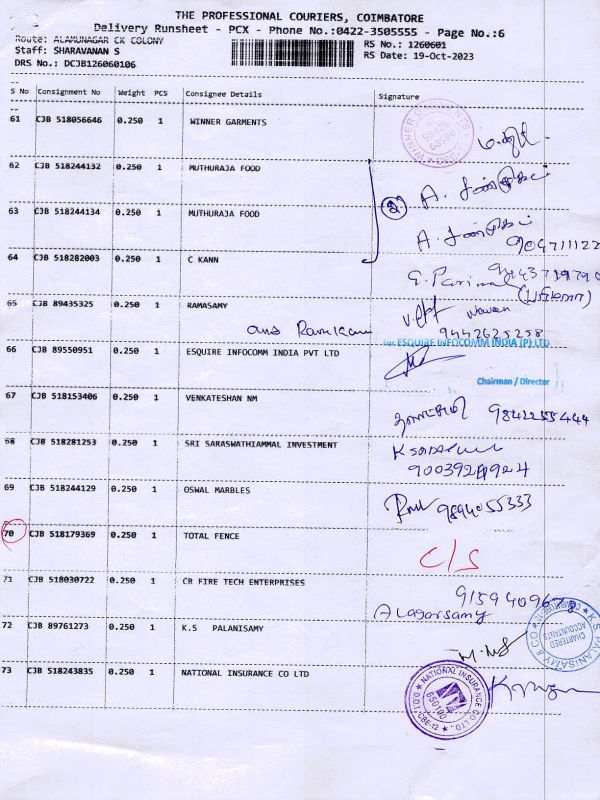 THE PROFESSIONAL COURIERS, COIMBATORE
Delivery Runsheet - PCX - Phone No.:0422-3505555 - Page No.:6
Route: ALAMUNAGAR CK COLONY
RS No.: 1260601
Staff: SHARAVANAN S
RS Date: 19-Oct-2023
DRS No.: DCJB126060106
S No Consignment No Weight PCS Consignee Details Signature
61 CJB 518056646 0.250 1 WINNER GARMENTS
62 CJB 518244132 0.250 1 MUTHURAJA FOOD
63 CJB 518244134 0.250 1 MUTHURAJA FOOD
64 CJB 518282003 0.250 1 C KANN
65 CJB 89435325 0.250 1 RAMASAMY
9442625258
66 CJB 89550951 0.250 1 ESQUIRE INFOCOMM INDIA PVT LTD
For ESQUIRE INFOCOMM INDIA (P) LTD
Chairman / Director
67 CJB 518153406 0.250 1 VENKATESHAN NM
9842255444
68 CJB 518281253 0.250 1 SRI SARASWATHIAMMAL INVESTMENT
69 CJB 518244129 0.250 1 OSWAL MARBLES
9894055333
70 CJB 518179369 0.250 1 TOTAL FENCE
C/S
71 CJB 518030722 0.250 1 CR FIRE TECH ENTERPRISES
Alagarsamy
72 CJB 89761273 0.250 1 K.S PALANISAMY
K.S. PALANISAMY & CO
CHARTERED ACCOUNTANTS
73 CJB 518243835 0.250 1 NATIONAL INSURANCE CO LTD
NATIONAL INSURANCE CO LTD
CBE-12